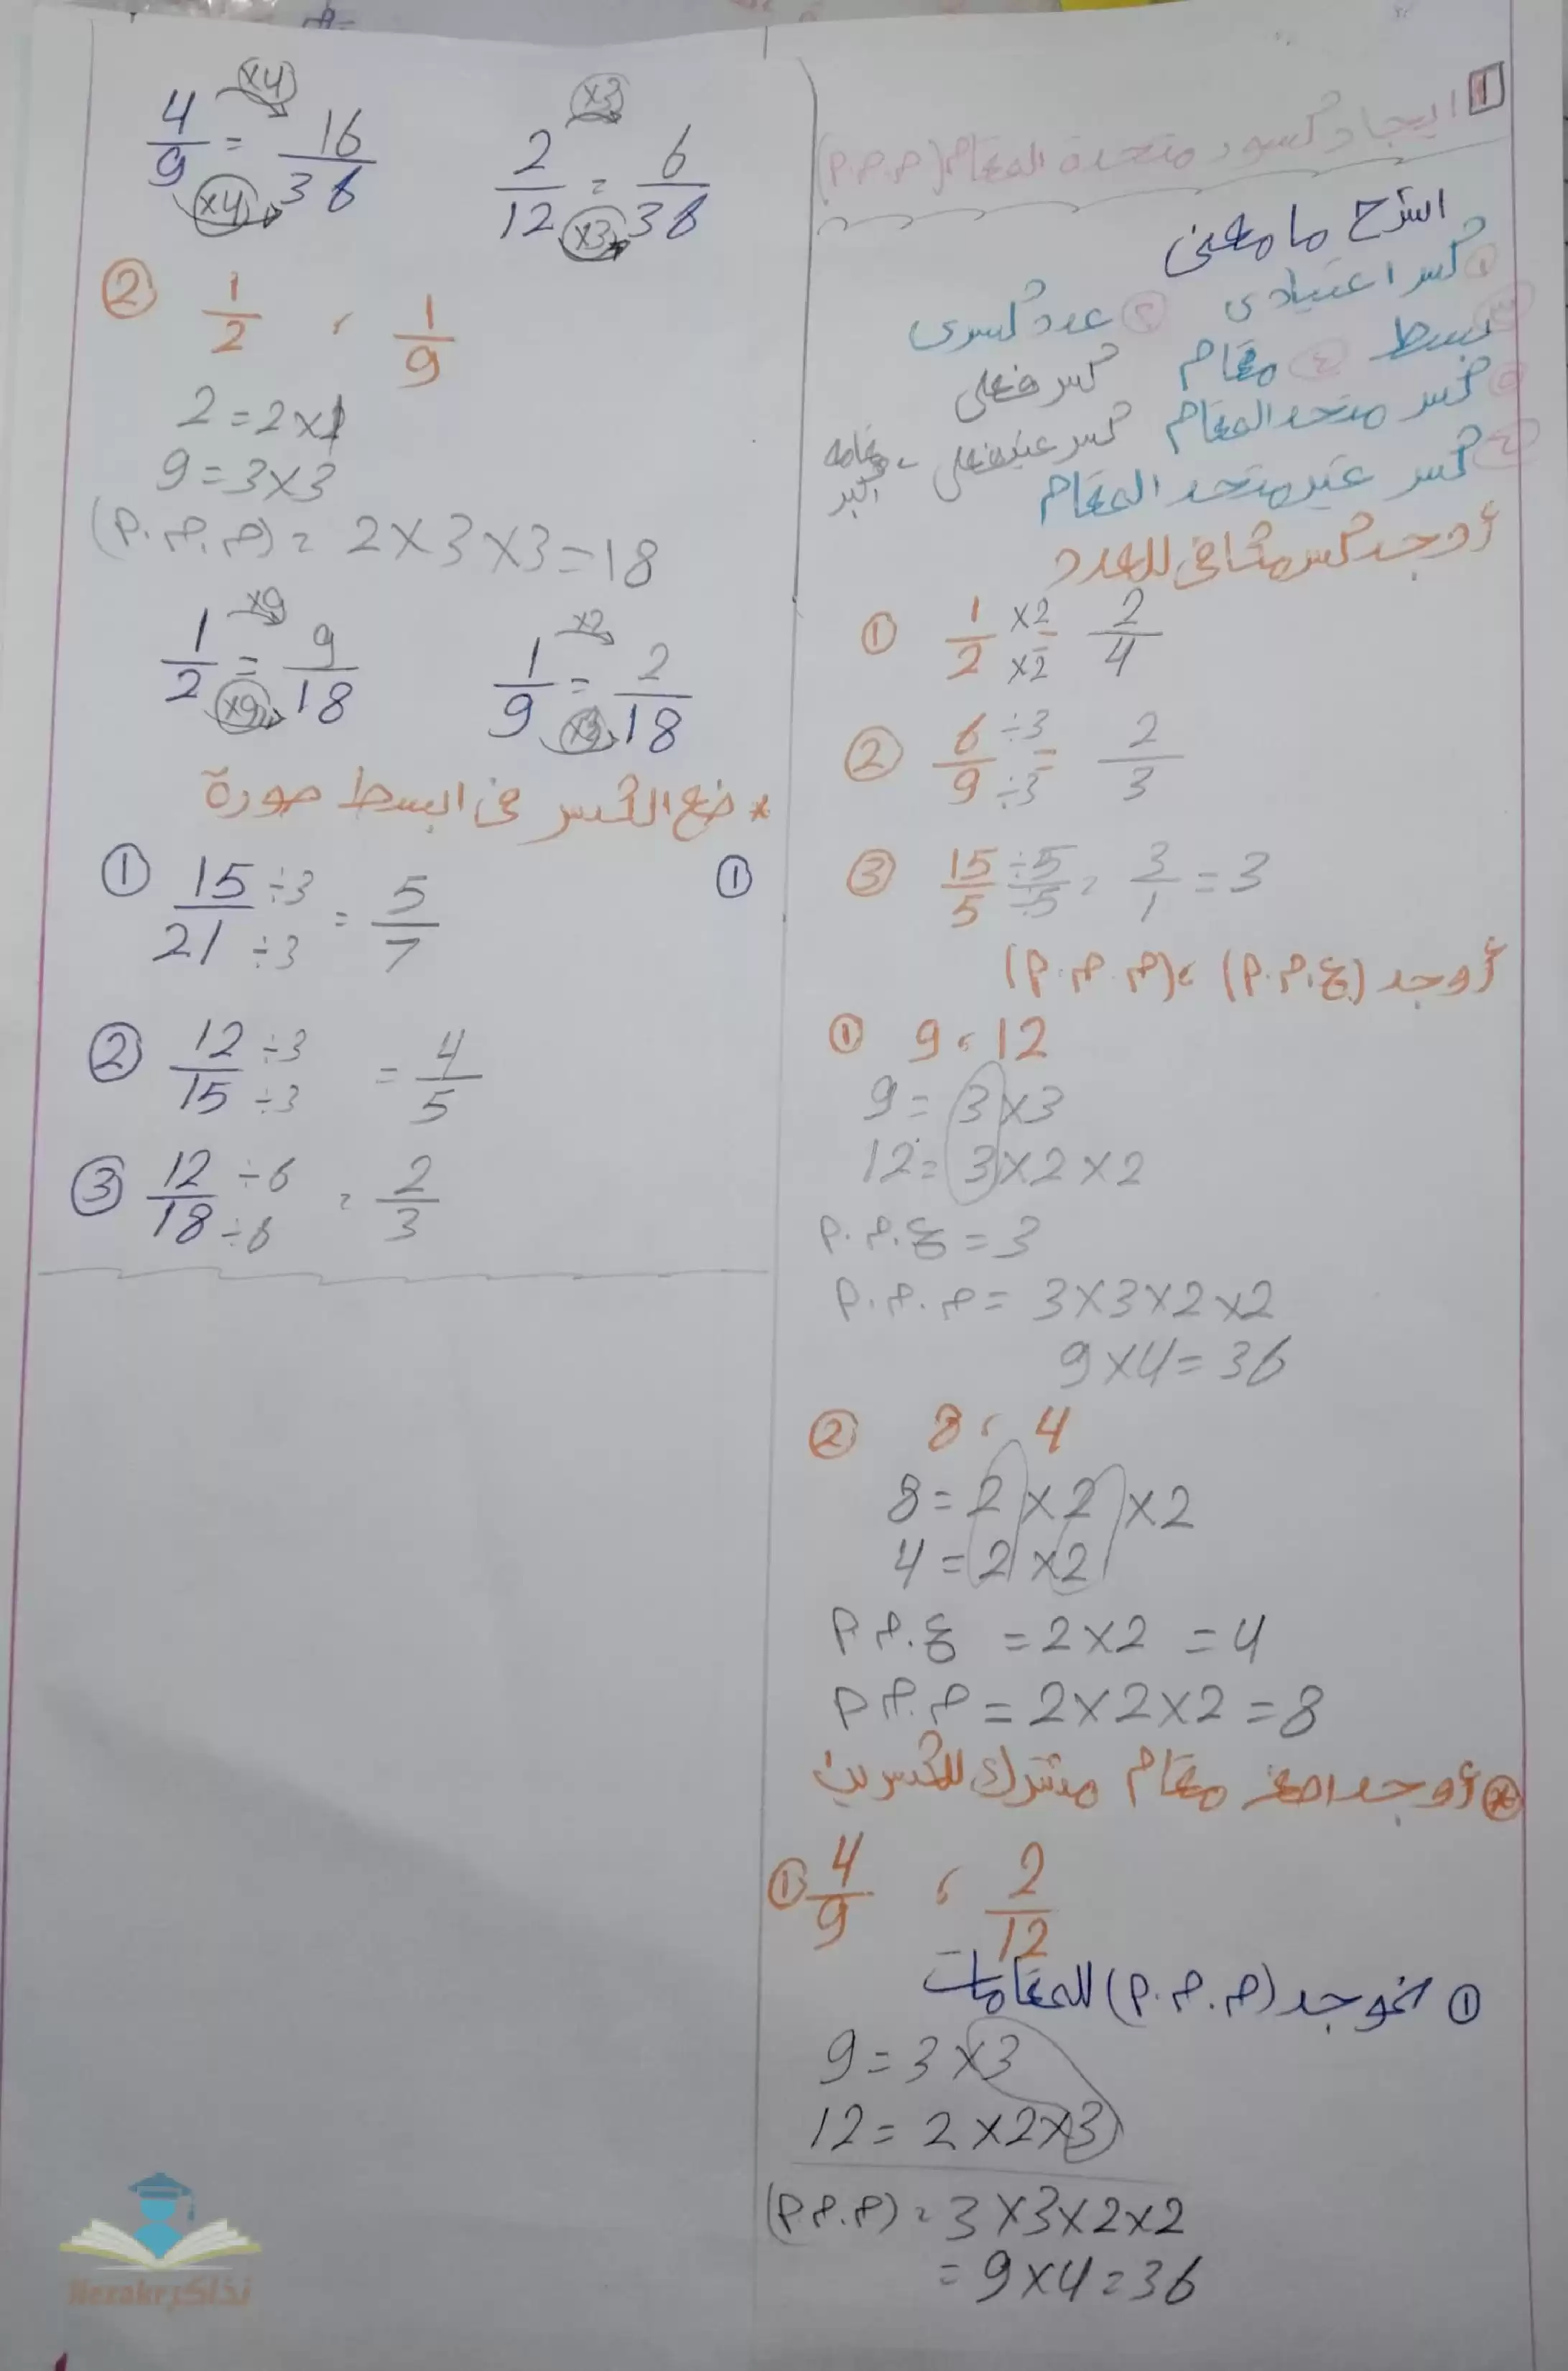 1 ايجاد كسور متحدة المقام (م.م.م)
اشرح ما معنى
① كسر اعتيادى ② عدد كسرى
③ بسط ④ مقام كسر فعلى
⑤ كسر متحد المقام كسر غير فعلى
كسر غير متحد المقام
أوجد كسر مكافئ للعدد
① 1/2 ×2/×2 = 2/4
② 6/9 ÷3/÷3 = 2/3
③ 15/5 ÷5/÷5 = 3/1 = 3
أوجد (ع.م.م) ، (م.م.م)
① 9 ، 12
9 = 3×3
12 = 3×2×2
ع.م.م = 3
م.م.م = 3×3×2×2
9×4 = 36
② 8 ، 4
8 = 2×2×2
4 = 2×2
ع.م.م = 2×2 = 4
م.م.م = 2×2×2 = 8
* أوجد اصغر مقام مشترك للكسرين
① 4/9 ، 2/12
① نوجد (م.م.م) للمقامات
9 = 3×3
12 = 2×2×3
(م.م.م) = 3×3×2×2
= 9×4 = 36
4/9 = 16/36 ×4 ×4
2/12 = 6/36 ×3 ×3
② 1/2 ، 1/9
2 = 2×1
9 = 3×3
(م.م.م) = 2×3×3 = 18
1/2 = 9/18 ×9 ×9
1/9 = 2/18 ×2
* ضع الكسر فى ابسط صورة
①
① 15/21 ÷3/÷3 = 5/7
② 12/15 ÷3/÷3 = 4/5
③ 12/18 ÷6/÷6 = 2/3
Nezakr نذاكر